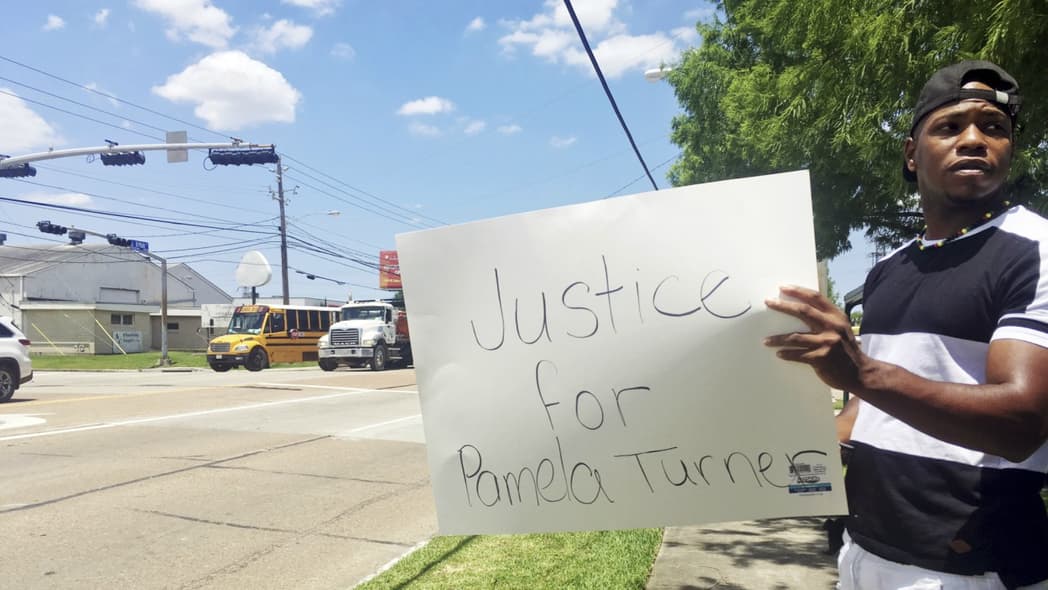 Justice
for
Pamela Turner